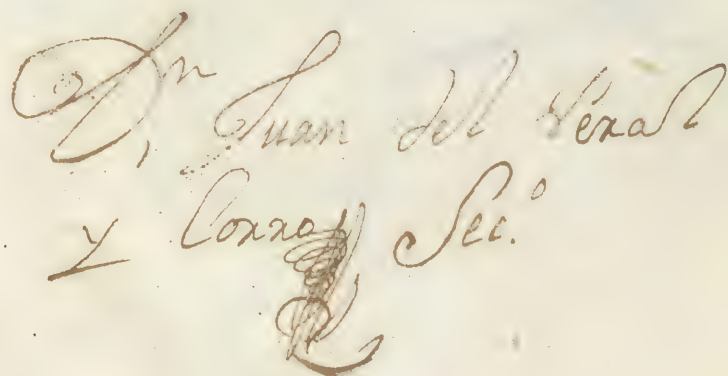 Dn Juan del Peral
y Conna Sec.o